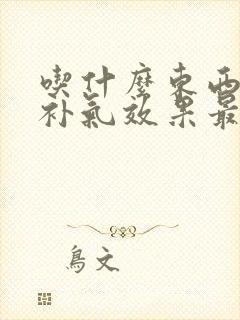 喫什麼東西
补氣效果最
鳥文